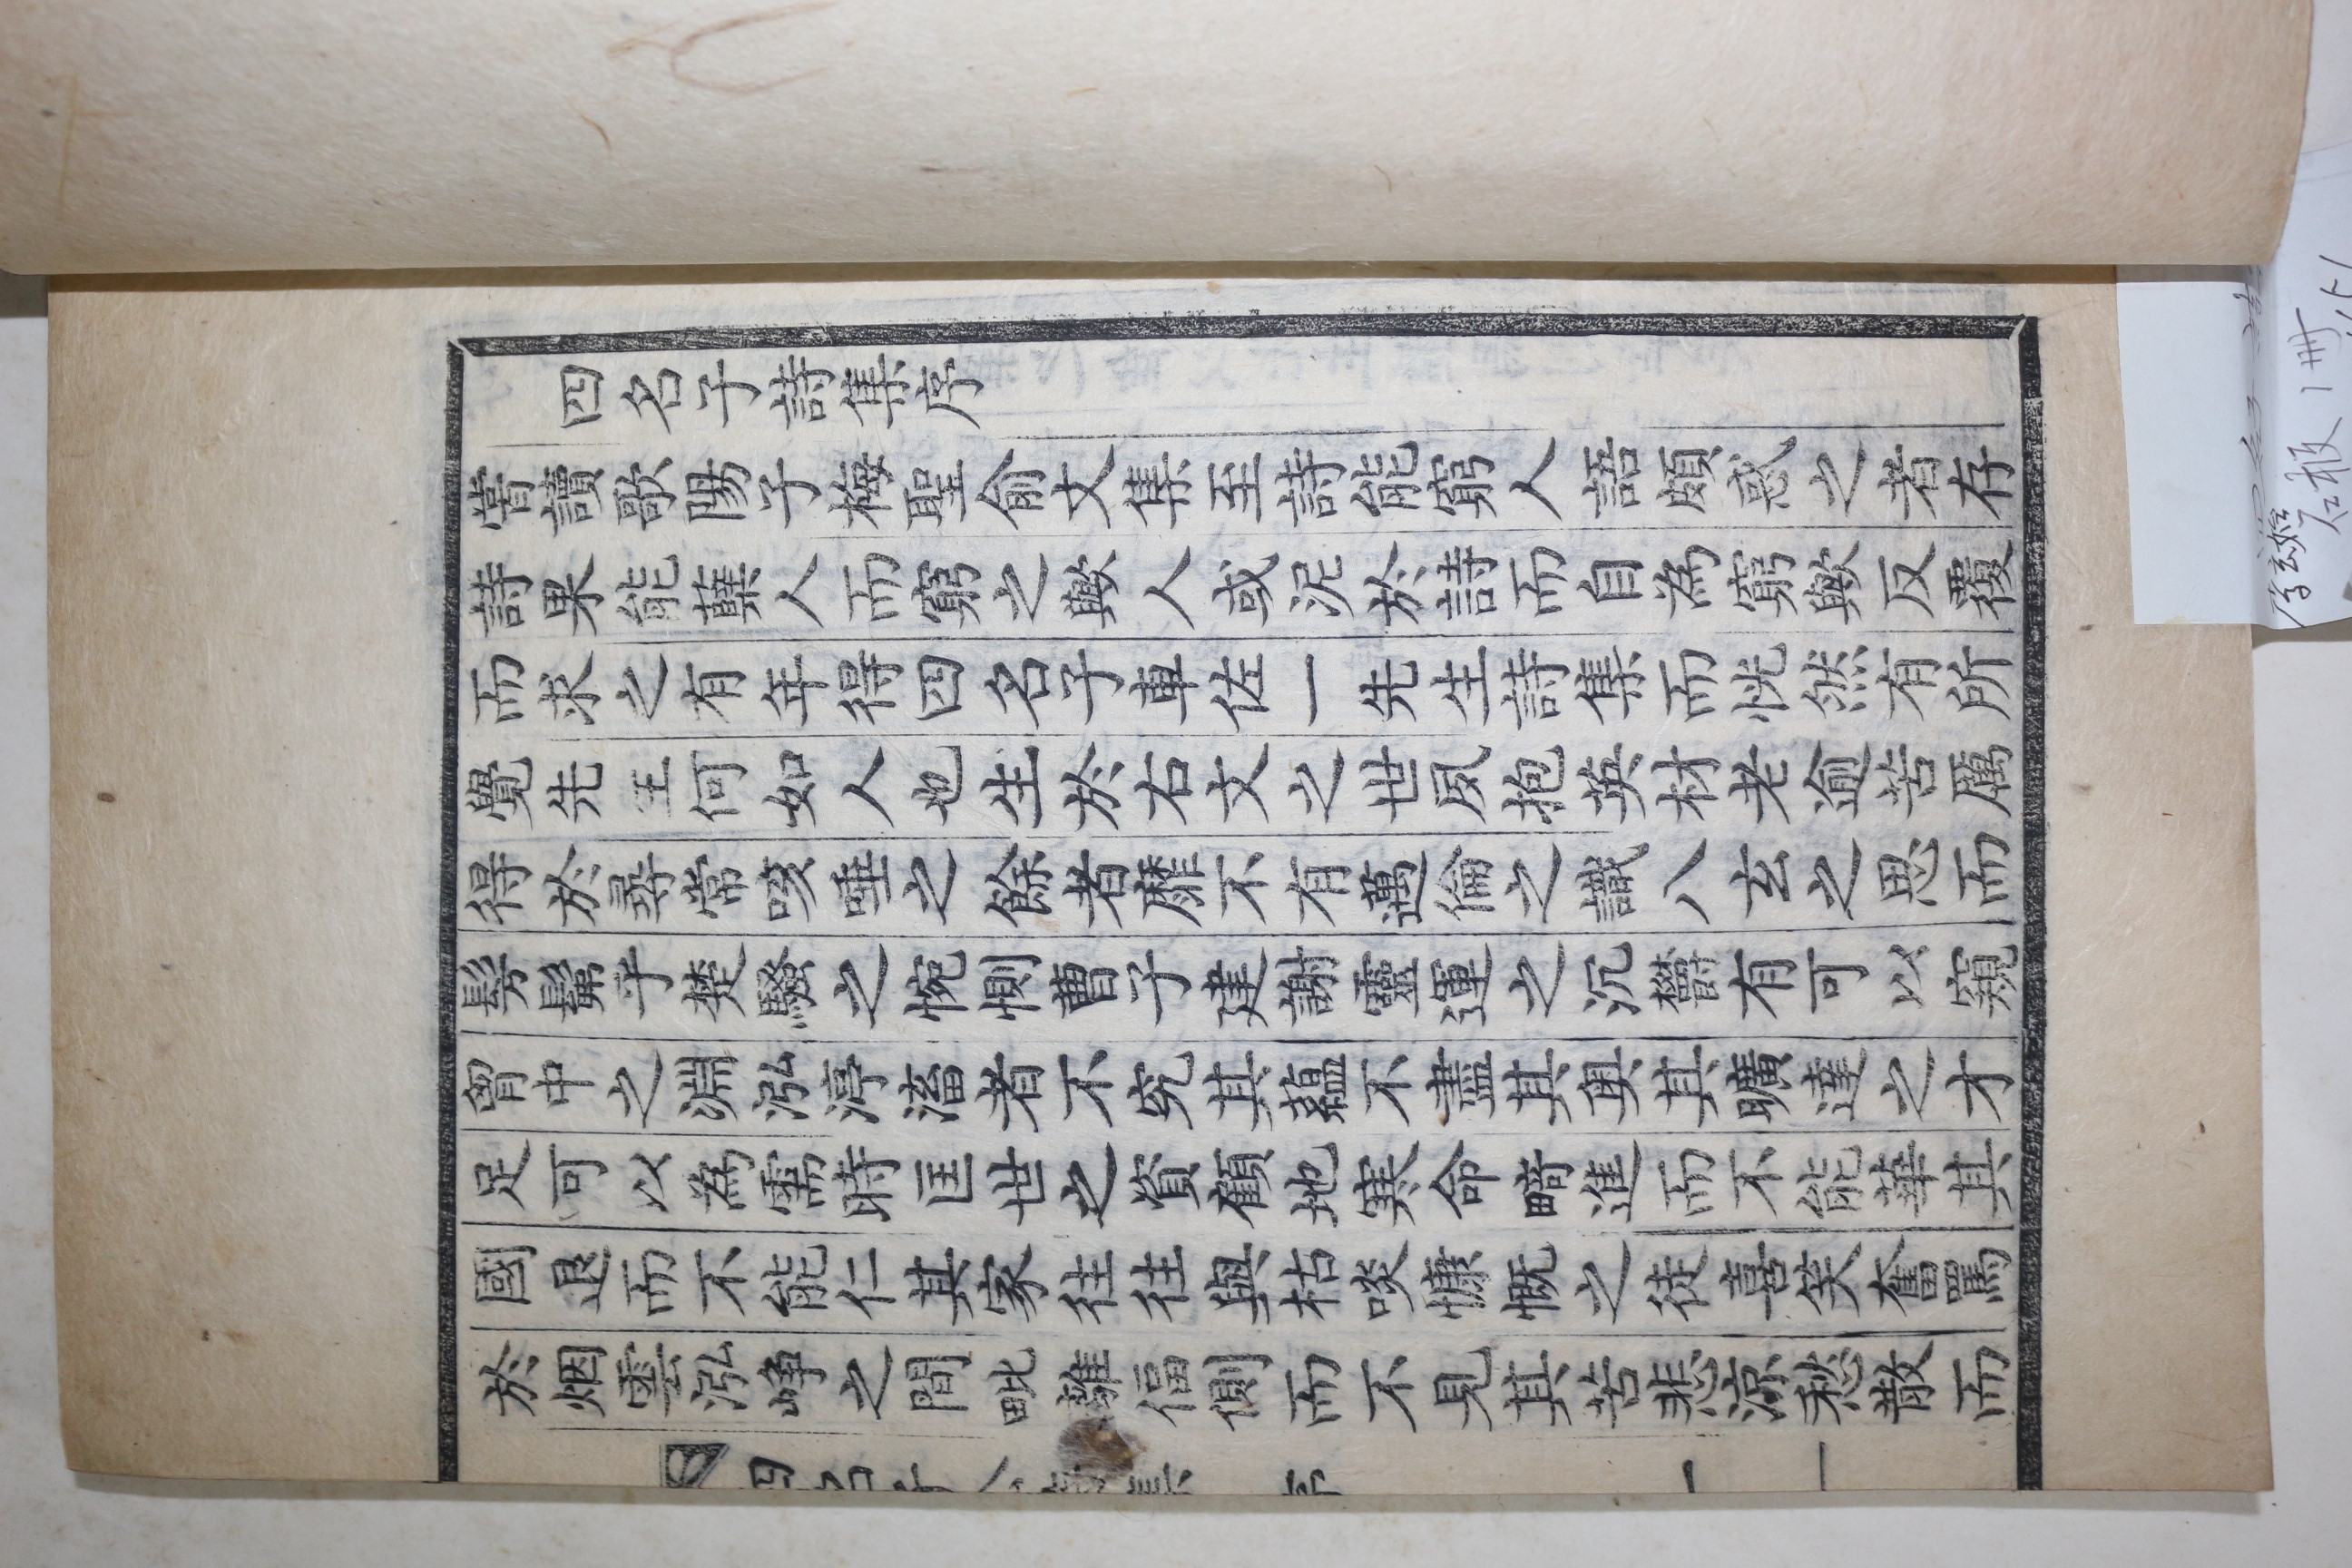 四名子詩集序
嘗讀歌陽子梅聖俞文集至詩能窮人語頗惑之者存
詩果能蘖人而窮之歟人或泥於詩而自為窮歟反覆
而求之有年得四名子車佐一先生詩集而恍然有所
覺先王何如人也生於右文之世夙抱英材老逾苦厲
得於尋常咳唾之餘者靡不有邁倫之識八玄之思而
髣髴乎楚騷之惋惻曹子建謝靈運之沉欝有可以窺
胷中之淵泓渟滀者不究其蘊不盡其奧其曠達之才
足可以為需時匡世之資顧地寒命畸進而不能華其
國退而不能仁其家往往與枯啖慷慨之徒喜笑奮罵
於烟雲泓崢之間毗離偪側而不見其苦悲涼愁散而
四名子
集
序
一
李玄始
石板 1冊